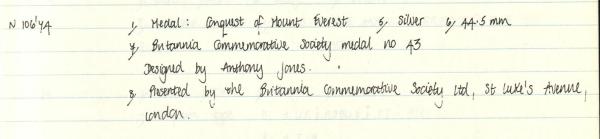 N 106'74 1, Medal: Conquest of Mount Everest 5, Silver 6, 44.5 mm
7, Britannia Commemorative Society medal no 43
Designed by Anthony Jones.
8, Presented by the Britannia Commemorative Society Ltd, St Luke's Avenue,
London.